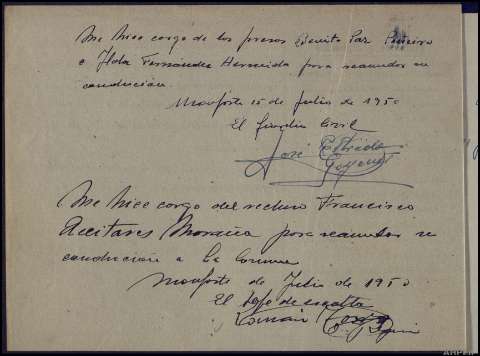 Me hice cargo de los presos Benito Paz Piñeiro
e Ilda Fernández Hermida para reanudar su
conducción.
Monforte 15 de Julio de 1950
El Guardia Civil
José
Me hice cargo del recluso Francisco
para reanudar su
conducción a la Coruña
Monforte de Julio de 1950
El Jefe de escolta
Román